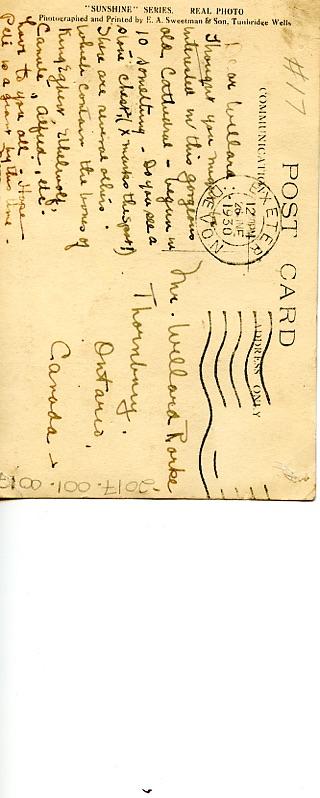 "SUNSHINE" SERIES. REAL PHOTO
Photographed and Printed by E. A. Sweetman & Son, Tunbridge Wells
#17
POST CARD
COMMUNICATION
ADDRESS ONLY
EXETER
DEVON
12
26 JNE
1930
Dear Willard
Thought you might be
interested in this gorgeous
old Cathedral - begun in
10 something - Do you see a
stone chest (X marks the spot!)
There are several of
which contain the bones of
Kings Egbert, Ethelwulf,
Canute, Alfred, etc.
Love to you all - Hope
Pat is a giant by this time -
Mr. Willard Rorke
Thornbury.
Ontario.
Canada
2017.001.001